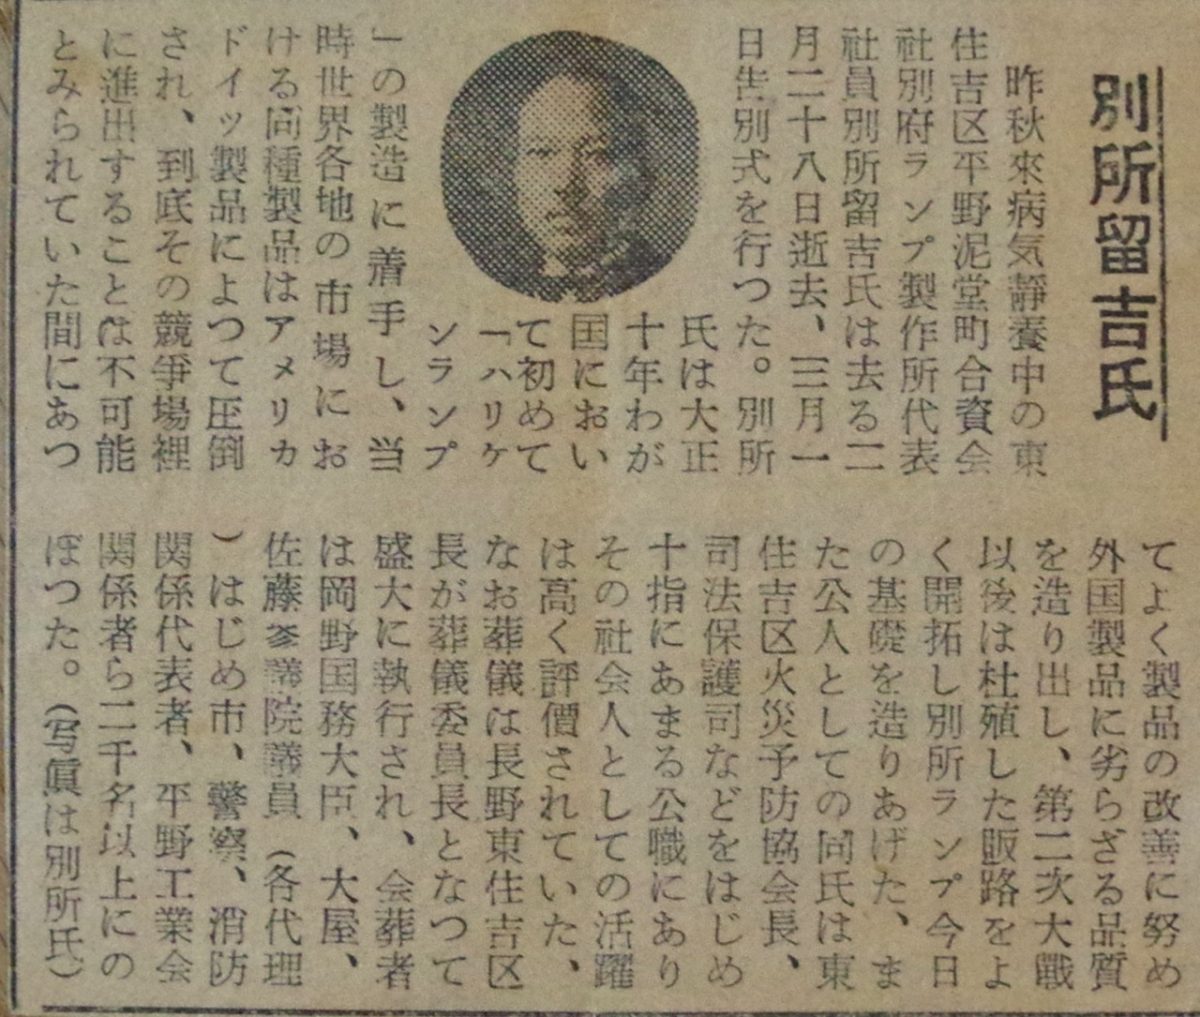 別所留吉氏
昨秋來病気靜養中の東
住吉区平野泥堂町合資会
社別府ランプ製作所代表
社員別所留吉氏は去る二
月二十八日逝去、三月一
日告別式を行つた。別所
氏は大正
十年わが
国におい
て初めて
「ハリケ
ンランプ
」の製造に着手し、当
時世界各地の市場にお
ける同種製品はアメリカ
ドイッ製品によつて圧倒
され、到底その競爭場裡
に進出することは不可能
とみられていた間にあつ
てよく製品の改善に努め
外国製品に劣らざる品質
を造り出し、第二次大戰
以後は杜殖した販路をよ
く開拓し別所ランプ今日
の基礎を造りあげた、ま
た公人としての同氏は東
住吉区火災予防協会長、
司法保護司などをはじめ
十指にあまる公職にあり
その社会人としての活躍
は高く評價されていた、
なお葬儀は長野東住吉区
長が葬儀委員長となつて
盛大に執行され、会葬者
は岡野国務大臣、大屋、
佐藤参議院議員（各代理
）はじめ市、警察、消防
関係代表者、平野工業会
関係者ら二千名以上にの
ぼつた。（写眞は別所氏）